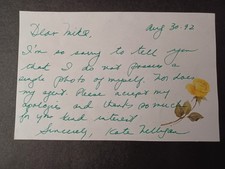 Dear Mike, Aug 30. 92
I'm so sorry to tell you
that I do not possess a
single photo of myself. Nor does
my agent. Please accept my
apologies and thanks so much
for your kind interest
Sincerely, Kate Nelligan